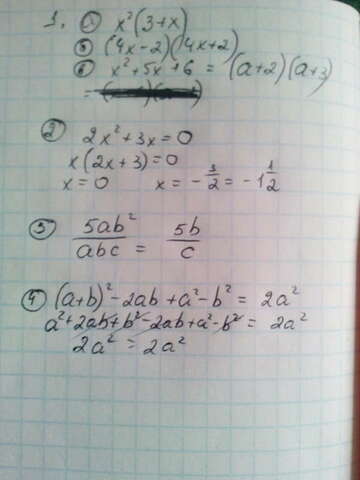 1. ① x²(3+x)
⑤ (4x-2)(4x+2)
⑥ x²+5x+6 = (a+2)(a+3)
=
② 2x²+3x=0
x(2x+3)=0
x=0 x=-3/2=-1 1/2
③ 5ab²/abc = 5b/c
④ (a+b)²-2ab+a²-b²= 2a²
a²+2ab+b²-2ab+a²-b²= 2a²
2a²=2a²